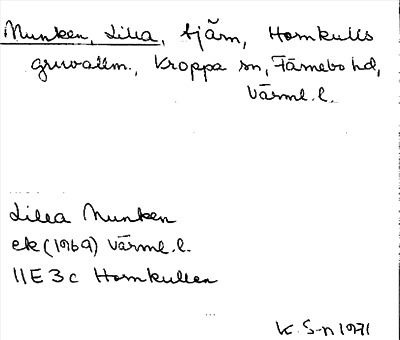 Munken, Lilla, tjärn, Hornkulls
gruvallm., Kroppa sn, Färnebo hd,
Värml. l.
Lilla Munken
ek (1969) Värml. l.
11E 3c Hornkullen
K. S-n 1971